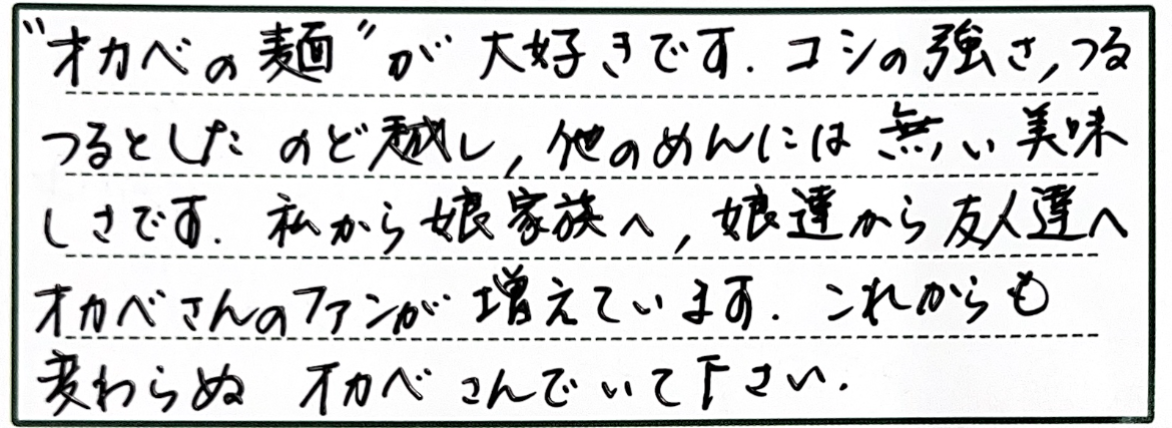 "オカベの麺"が 大好きです. コシの強さ, つる
つるとした のど越し, 他のめんには 無い 美味
しさです. 私から娘家族へ, 娘達から友人達へ
オカベさんのファンが 増えています. これからも
変わらぬ オカベさんでいて下さい.